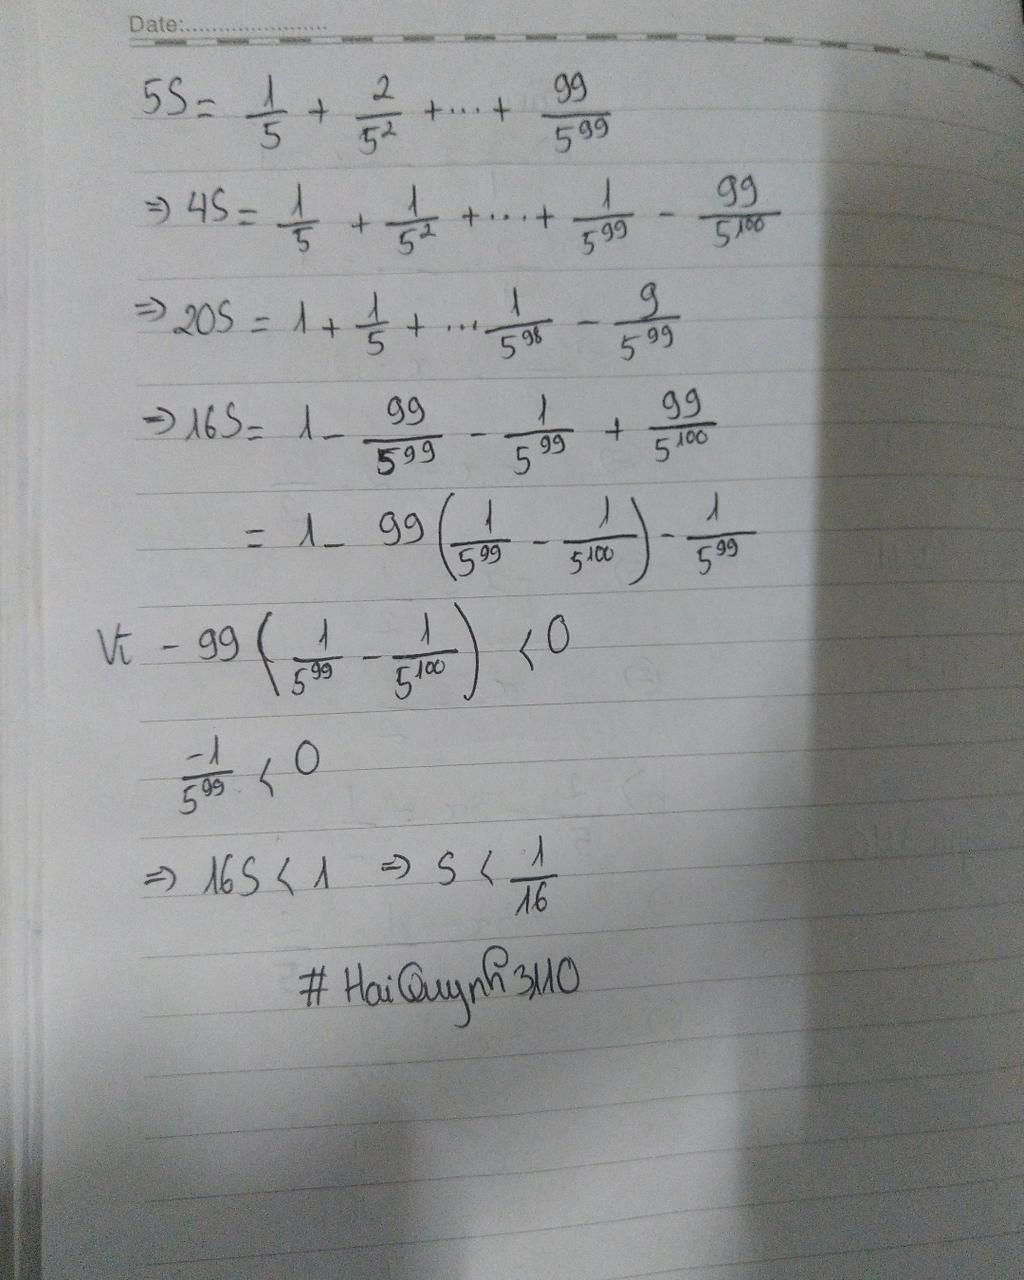 Date:......................
5S = 1/5 + 2/5² + ... + 99/5⁹⁹
⇒ 4S = 1/5 + 1/5² + ... + 1/5⁹⁹ - 99/5¹⁰⁰
⇒ 20S = 1 + 1/5 + ... 1/5⁹⁸ - 9/5⁹⁹
⇒ 16S = 1 - 99/5⁹⁹ - 1/5⁹⁹ + 99/5¹⁰⁰
= 1 - 99 (1/5⁹⁹ - 1/5¹⁰⁰) - 1/5⁹⁹
Vì - 99 (1/5⁹⁹ - 1/5¹⁰⁰) < 0
-1/5⁹⁹ < 0
⇒ 16S < 1 ⇒ S < 1/16
# HaiQuynh3110